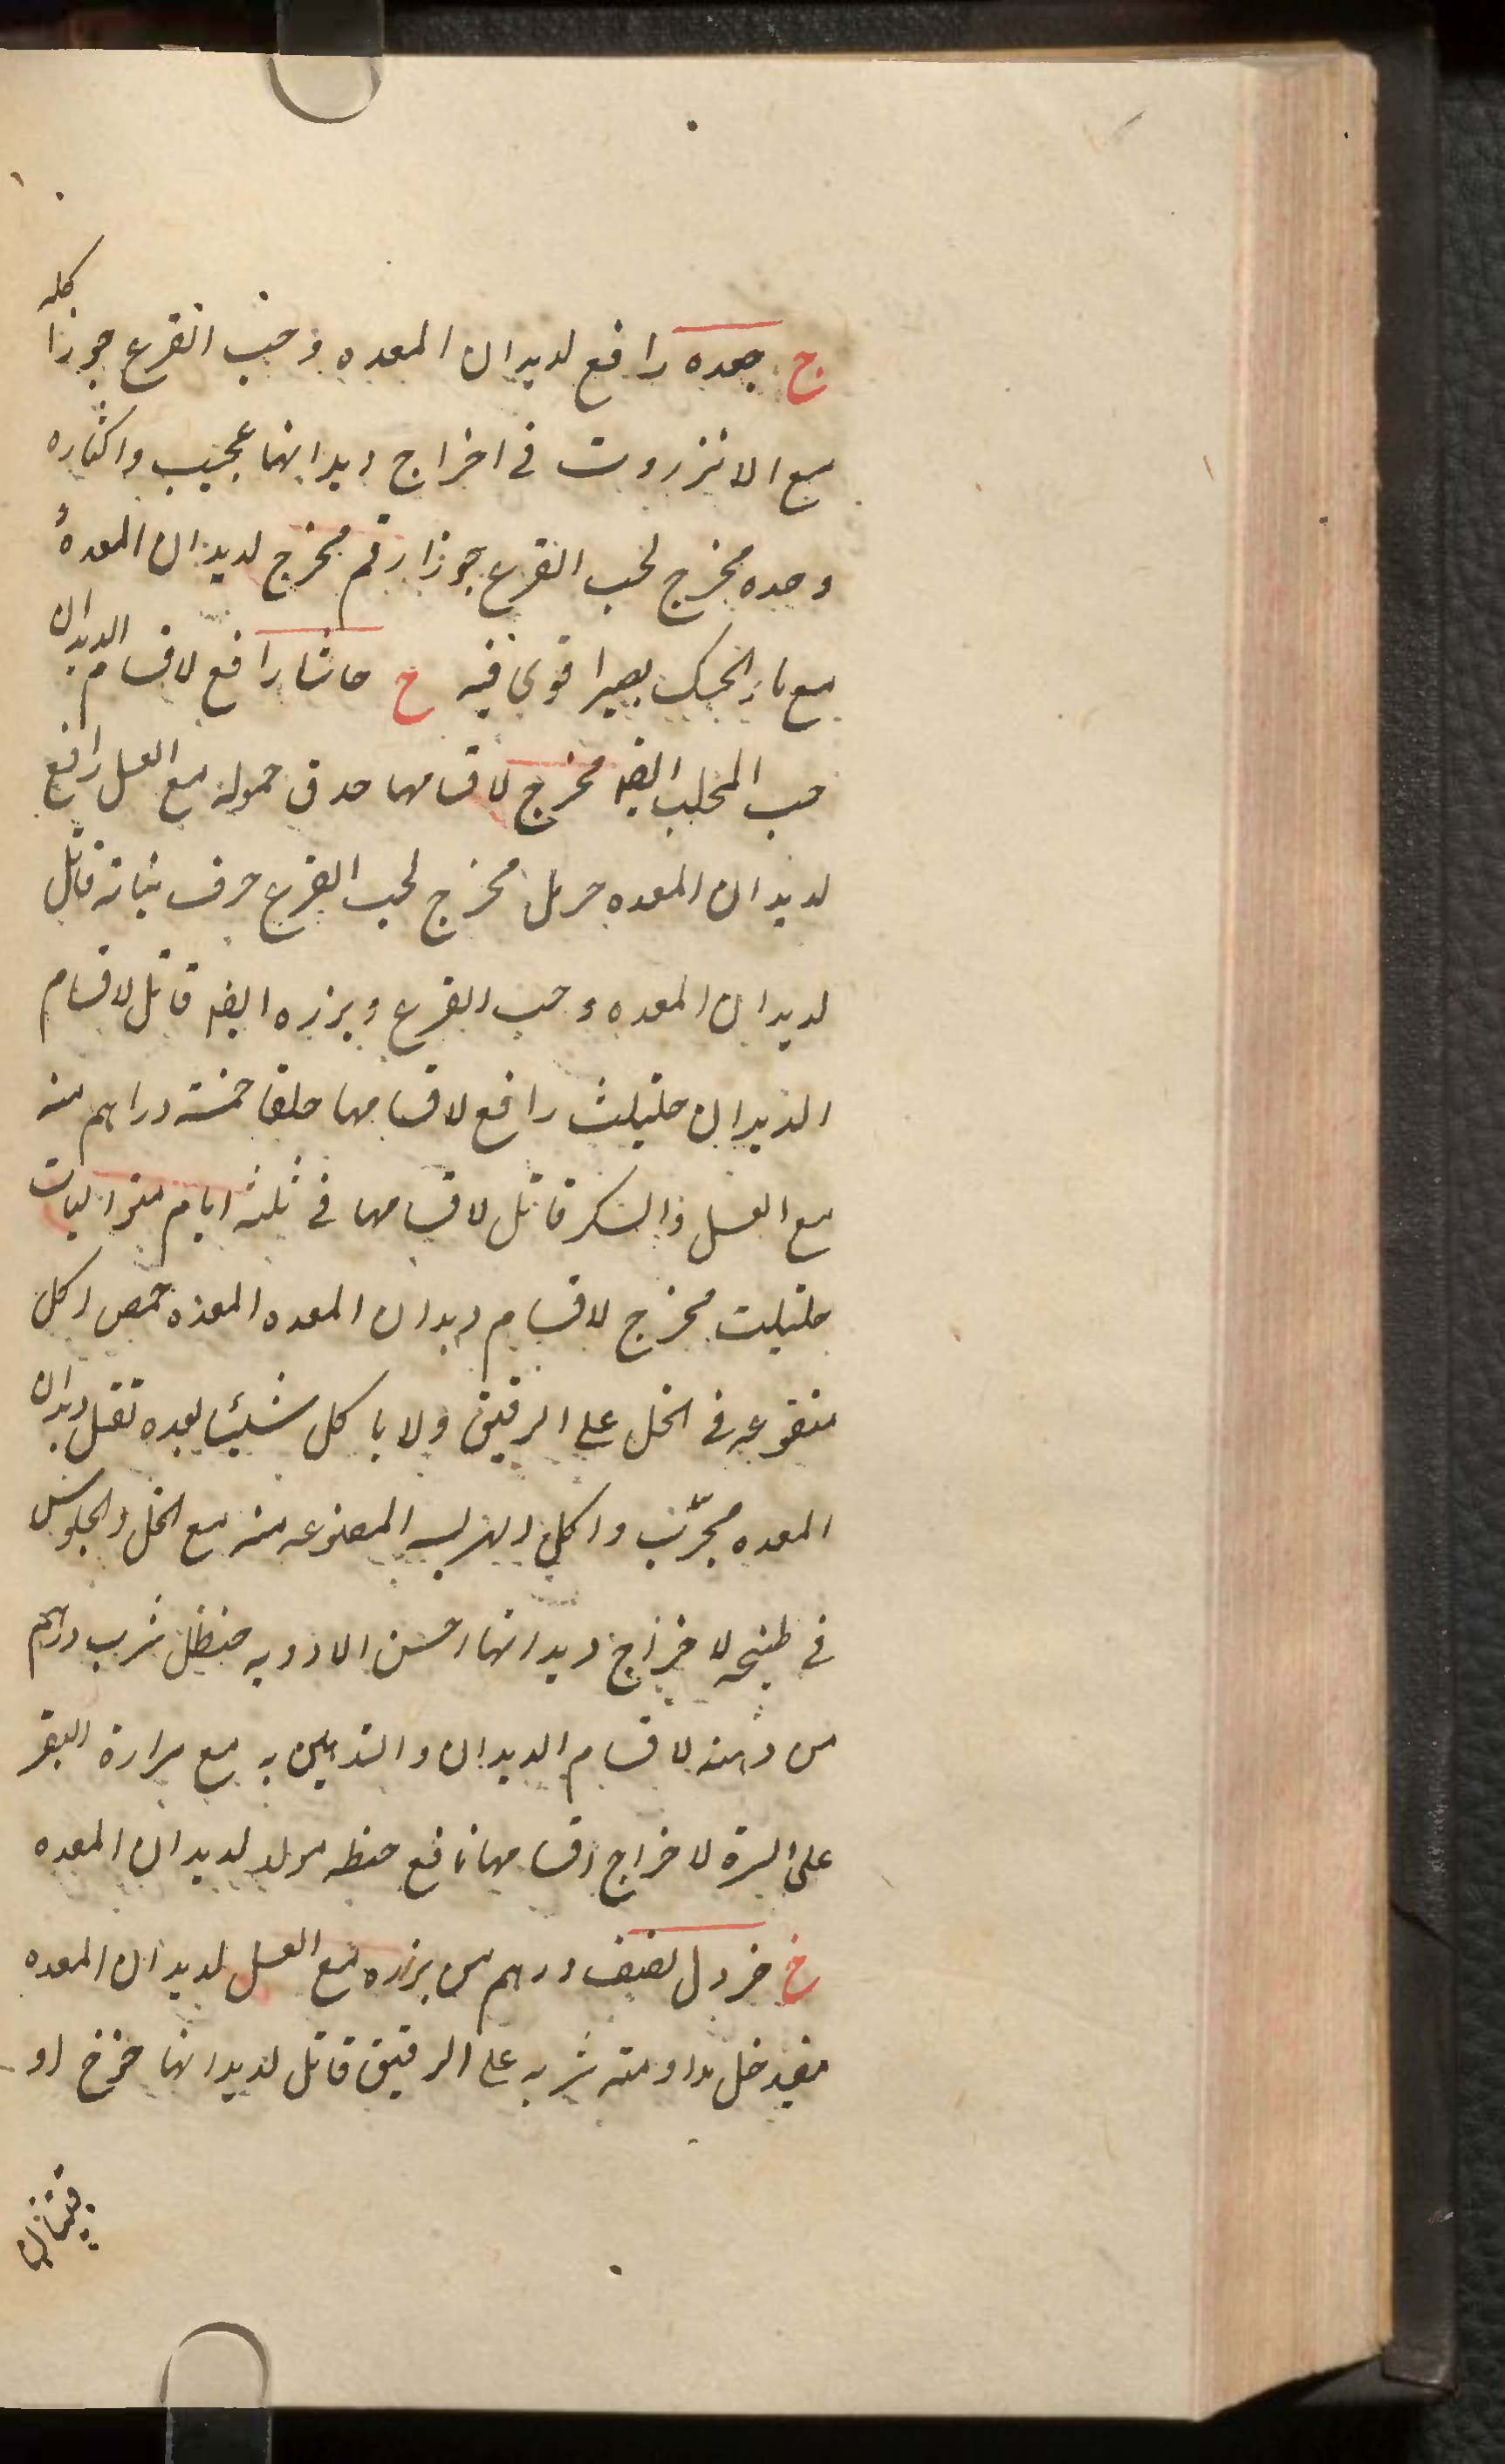 ج جعده رافع لديدان المعده وحب القرع جوز اكله
مع الانزروت فى اخراج ديدانها عجيب واكثاره
وحده مخرج لحب القرع جوز ارقم مخرج لديدان المعدة
مع ماء الحسك بصيرا قوى فيه ح حاشا رافع لاقسام الديدان
حب المحلب ايضا مخرج لاقسامها حدق حموله مع العسل رافع
لديدان المعده حرمل مخرج لحب القرع حرف نباته قاتل
لديدان المعده وحب القرع وبزره ايضا قاتل لاقسام
الديدان حلتيت رافع لاقسامها حلفا خمسة دراهم منه
مع العسل والسكر قاتل لاقسامها فى ثلثه ايام متواليات
حلتيت مخرج لاقسام ديدان المعده المعده حمص اكل
منقوعه فى الخل على الريق ولا ياكل شيئا بعده تقتل ديدان
المعده مجرّب واكل الهريسه المصنوعه منه مع الخل والجلوس
فى طبيخه لاخراج ديدانها احسن الادويه حنظل شرب درهم
من دهنه لاقسام الديدان والتدهين به مع مرارة البقر
على السرة لاخراج اقسامها نافع حنطه مولد لديدان المعده
خ خردل نصف درهم من بزره مع العسل لديدان المعده
مفيد خل مداومته شربه على الريق قاتل لديدانها خوخ او